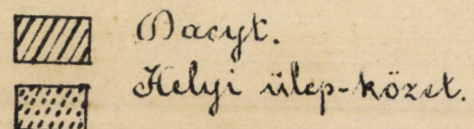 Dacyt.
Helyi ülep-közet.